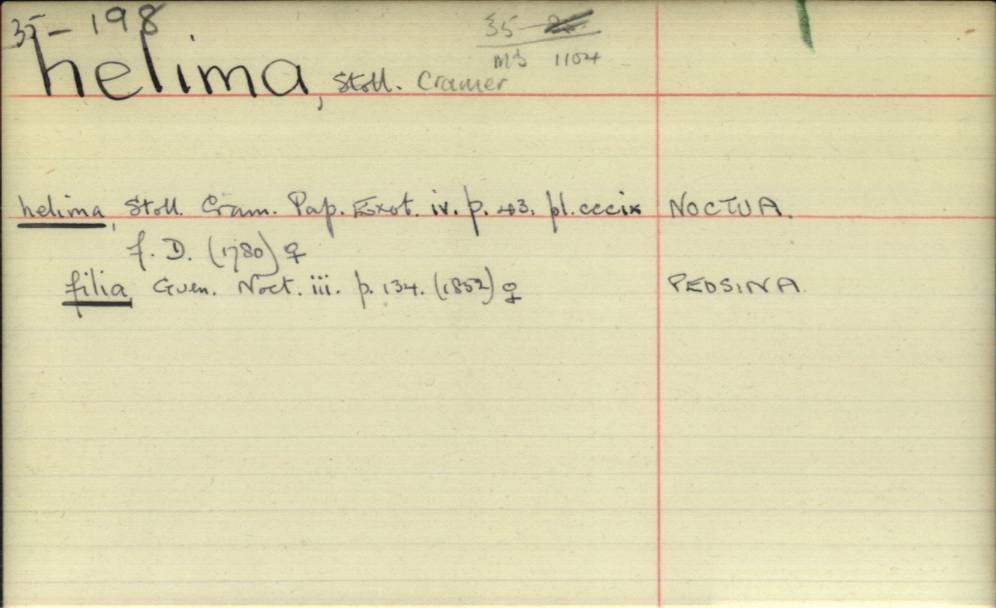 35-198
35-
MS 1104
helima, Stoll. Cramer
helima, Stoll. Cram. Pap. Exot. iv. p. 43, pl. cccix NOCTUA.
f. D. (1780) ♀
filia Guen. Noct. iii. p. 134. (1852) ♀ PEOSINA.